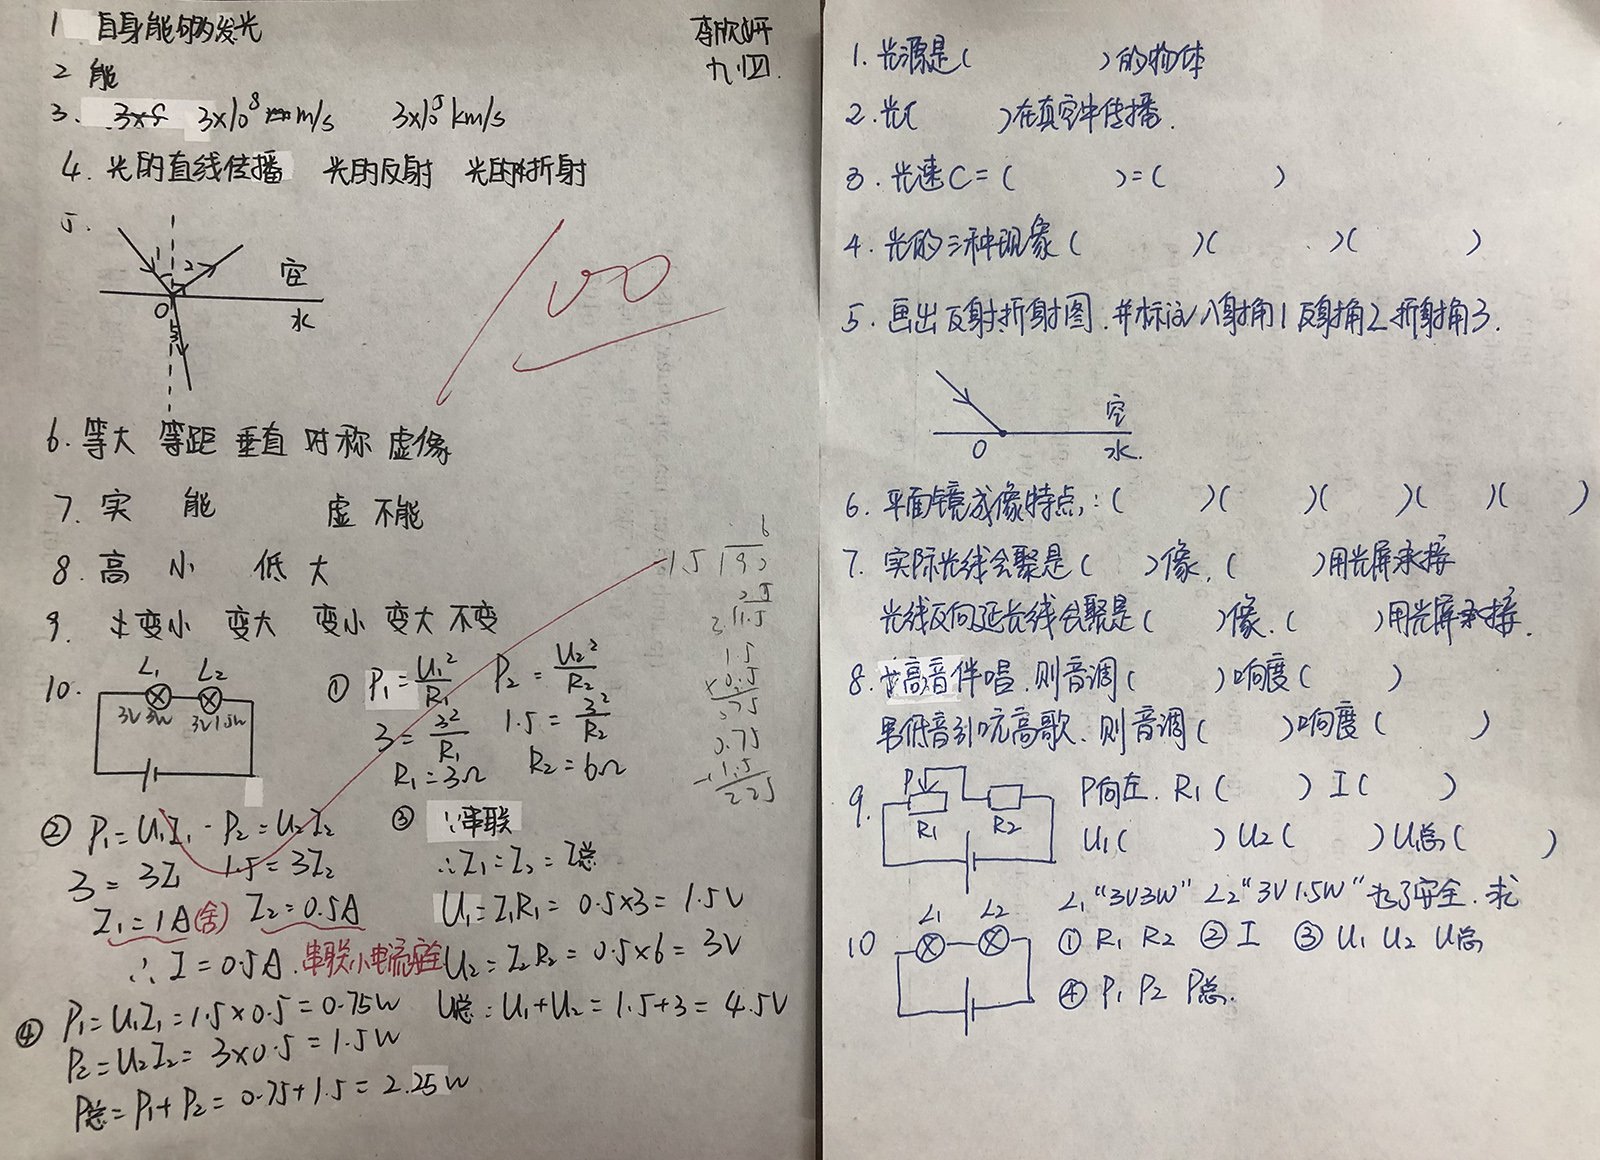 1 自身能够发光
李欣妍
九.四.
2 能
3. 3×10⁸ m/s 3×10⁵ km/s
4. 光的直线传播 光的反射 光的折射
5.
1 2
空
O
水
3
100
6. 等大 等距 垂直 对称 虚像
7. 实 能 虚 不能
8. 高 小 低 大
9. 变小 变大 变小 变大 不变
10.
L₁ L₂
3V 3W 3V 1.5W
① P₁=U₁²/R₁ P₂=U₂²/R₂
3=3²/R₁ 1.5=3²/R₂
R₁=3Ω R₂=6Ω
② P₁=U₁I₁ · P₂=U₂I₂
3=3I₁ 1.5=3I₂
I₁=1A(舍) I₂=0.5A
∴ I=0.5A. 串联小电流安全
③ ∵串联
∴I₁=I₂=I总
U₁=I₁R₁=0.5×3=1.5V
U₂=I₂R₂=0.5×6=3V
U总=U₁+U₂=1.5+3=4.5V
④ P₁=U₁I₁=1.5×0.5=0.75W
P₂=U₂I₂=3×0.5=1.5W
P总=P₁+P₂=0.75+1.5=2.25W
1.5
×0.5
0.75
0.75
+1.5
2.25
1. 光源是( )的物体
2. 光( )在真空中传播.
3. 光速C=( )=( )
4. 光的三种现象( )( )( )
5. 画出反射.折射图.并标注入射角1 反射角2 折射角3.
空
O 水.
6. 平面镜成像特点:( )( )( )( )( )
7. 实际光线会聚是( )像,( )用光屏承接
光线反向延长线会聚是( )像.( )用光屏承接.
8. 女高音伴唱.则音调( )响度( )
男低音引吭高歌.则音调( )响度( )
9. P R₁ R₂ P向左. R₁( ) I( )
U₁( ) U₂( ) U总( )
L₁“3V3W” L₂“3V1.5W” 为了安全.求
10 L₁ L₂ ① R₁ R₂ ② I ③ U₁ U₂ U总
④ P₁ P₂ P总.